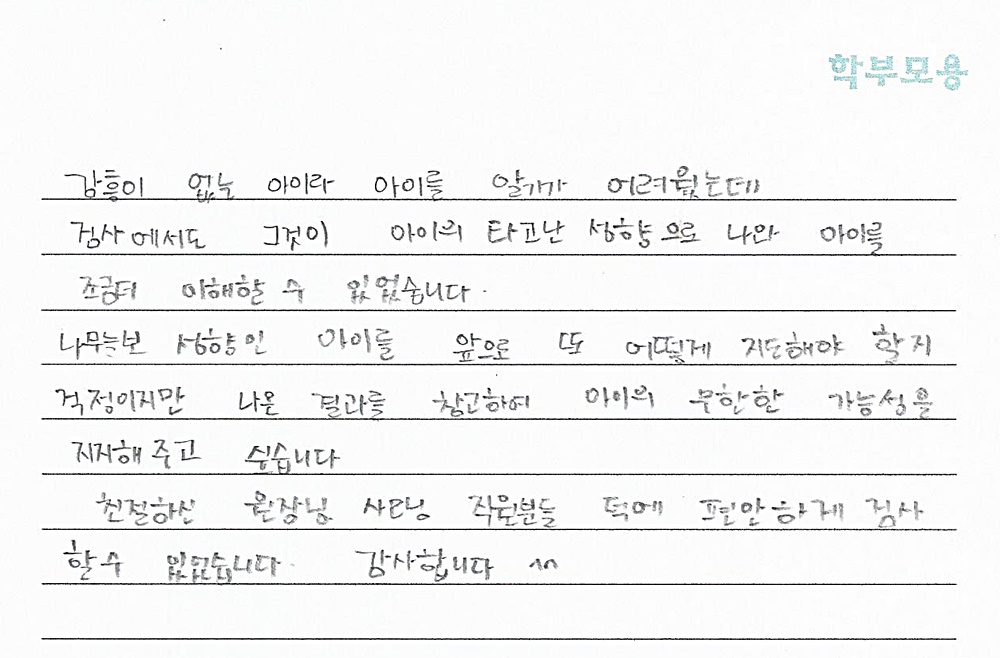 학부모용
감흥이 없는 아이라 아이를 알기가 어려웠는데
검사에서도 그것이 아이의 타고난 성향으로 나와 아이를
조금더 이해할 수 있었습니다.
나무늘보 성향인 아이를 앞으로 또 어떻게 지도해야 할지
걱정이지만 나온 결과를 참고하여 아이의 무한한 가능성을
지지해 주고 싶습니다
친절하신 원장님 사모님 직원분들 덕에 편안하게 검사
할 수 있었습니다. 감사합니다 ^^